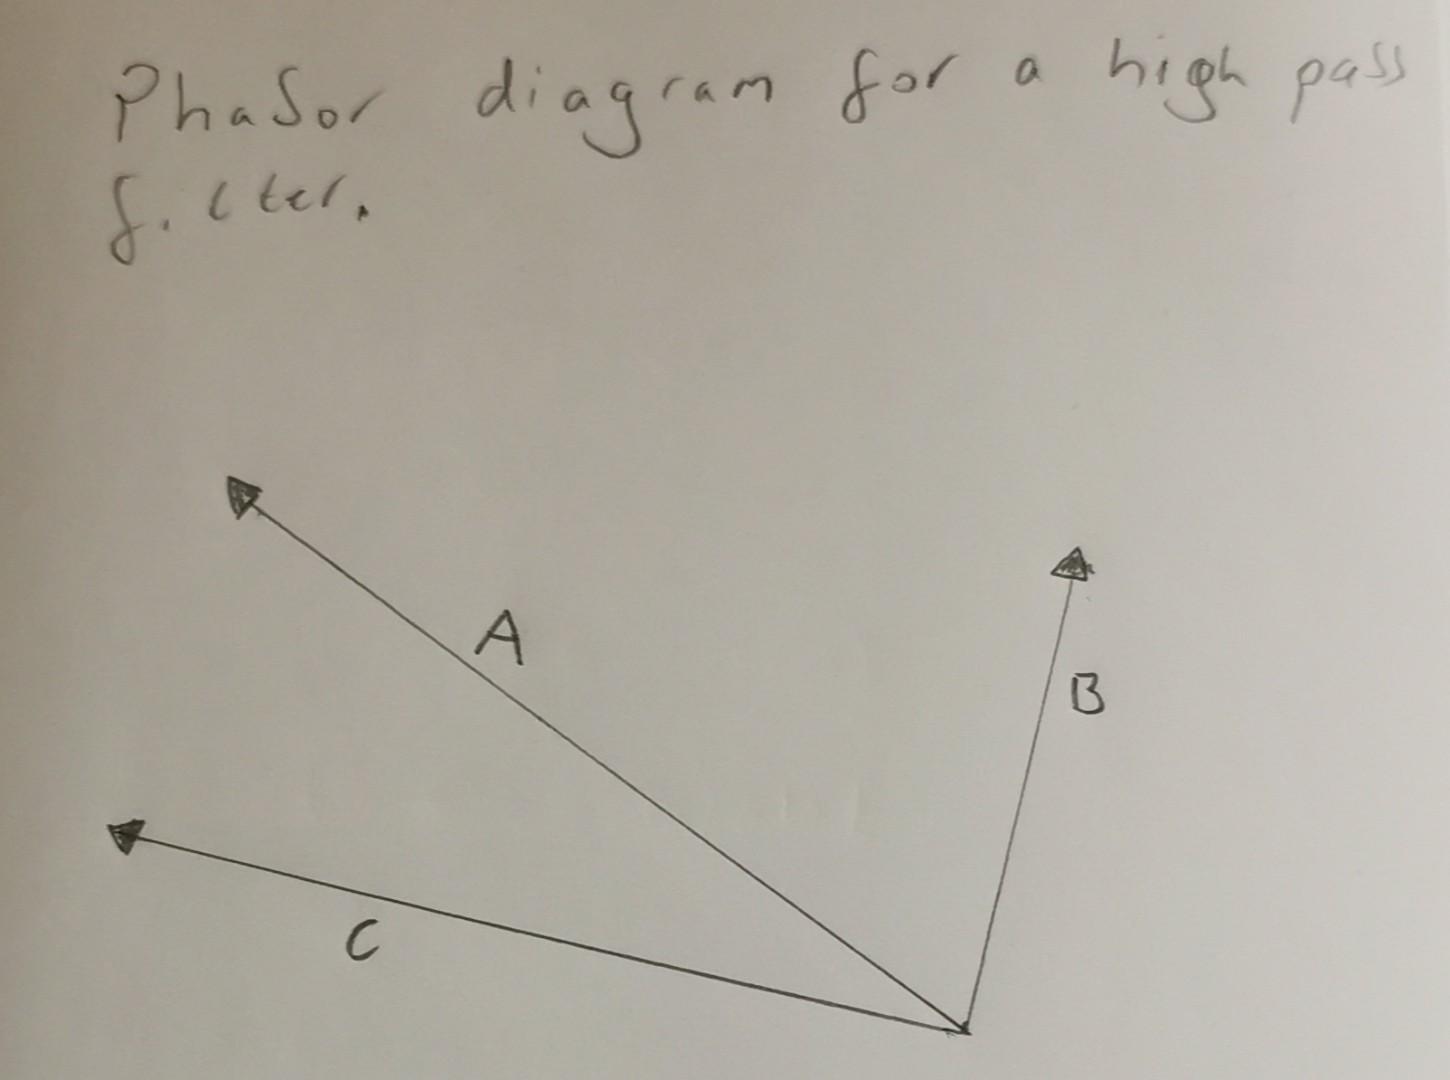 Phasor diagram for a high pass
filter.
A
B
C